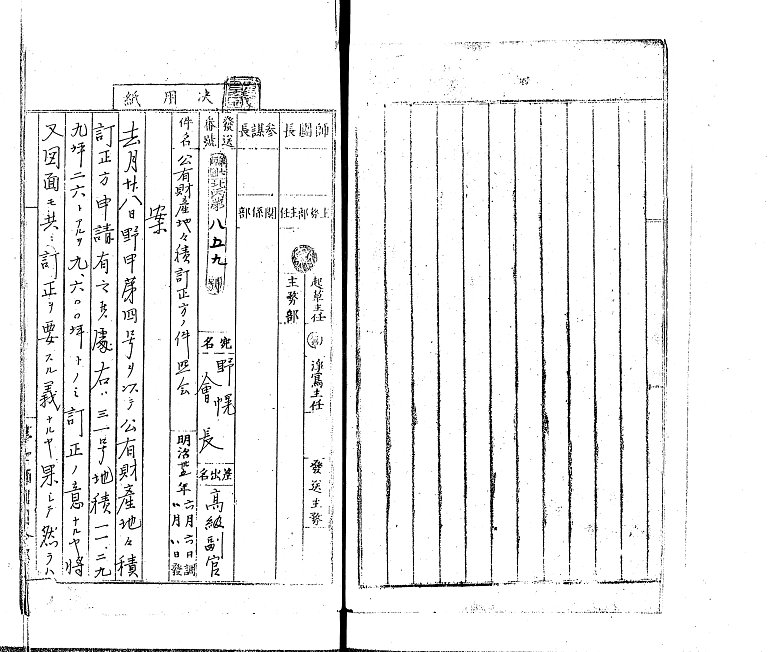 決用紙
師團長
參謀長
主務部主任
關係部
起草主任
淨寫主任
發送主務
主務部
發送番號
八五九
宛名
野幌會長
差出名
高級副官
件名
公有財産地々積訂正方ノ件照会
明治廿五年六月六日調
〃月〃日發
案
去月廿八日野甲第四号ヲ以テ公有財産地々積
訂正方申請有之候處右ハ三一号地積一一、二九
九坪二六トアルヲ九、六〇〇坪トノミ訂正ノ意ナルヤ將
又図面モ共ニ訂正ヲ要スル義ナルヤ果シテ然ラハ